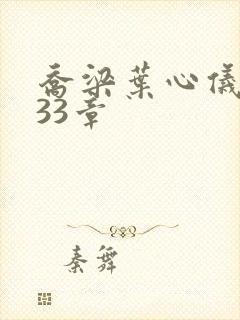 乔梁葉心儀
33章
秦舞